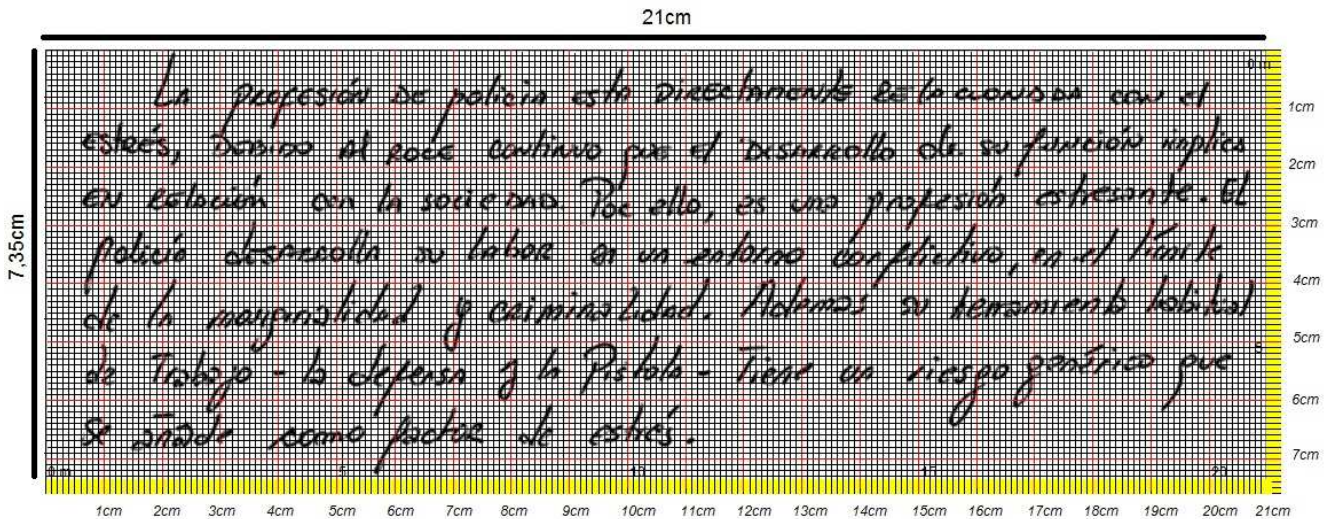 21cm
0 m
La profesión de policia esta directamente relacionada con el
1cm
estrés, debido al roce continuo que el desarrollo de su función implica
2cm
en relación con la sociedad. Por ello, es una profesión estresante. El
3cm
7,35cm
policia desarrolla su labor en un entorno conflictivo, en el límite
4cm
de la marginalidad y criminalidad. Ademas su herramienta habitual
5cm
5
de Trabajo - la defensa y la Pistola - Tiene un riesgo genérico que
6cm
se añade como factor de estrés.
7cm
0 m 5 10 15 20
1cm 2cm 3cm 4cm 5cm 6cm 7cm 8cm 9cm 10cm 11cm 12cm 13cm 14cm 15cm 16cm 17cm 18cm 19cm 20cm 21cm